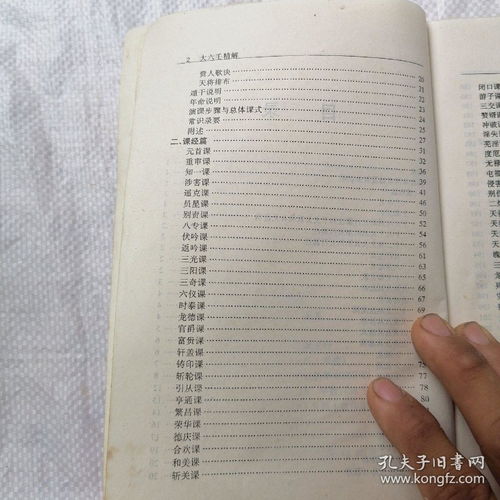 2 大六壬精解
贵人歌诀 20
天将排布 21
遁干说明 21
年命说明 22
演课步骤与总体课式 23
常识录要 24
附述 25
二、课经篇 27
元首课 31
重审课 32
知一课 36
涉害课 39
遥克课 41
昴星课 46
别责课 50
八专课 52
伏吟课 54
返吟课 56
三光课 61
三阳课 63
三奇课 65
六仪课 66
时泰课 67
龙德课 69
官爵课
富贵课
轩盖课
铸印课 75
斫轮课 77
引从课 78
亨通课 80
繁昌课
荣华课
德庆课
合欢课
和美课
斩关课
闭口课
游子课
三交课
冲破
淫
芜淫
度厄
无禄
侵害
二
天
天
天
三
孔夫子旧书网